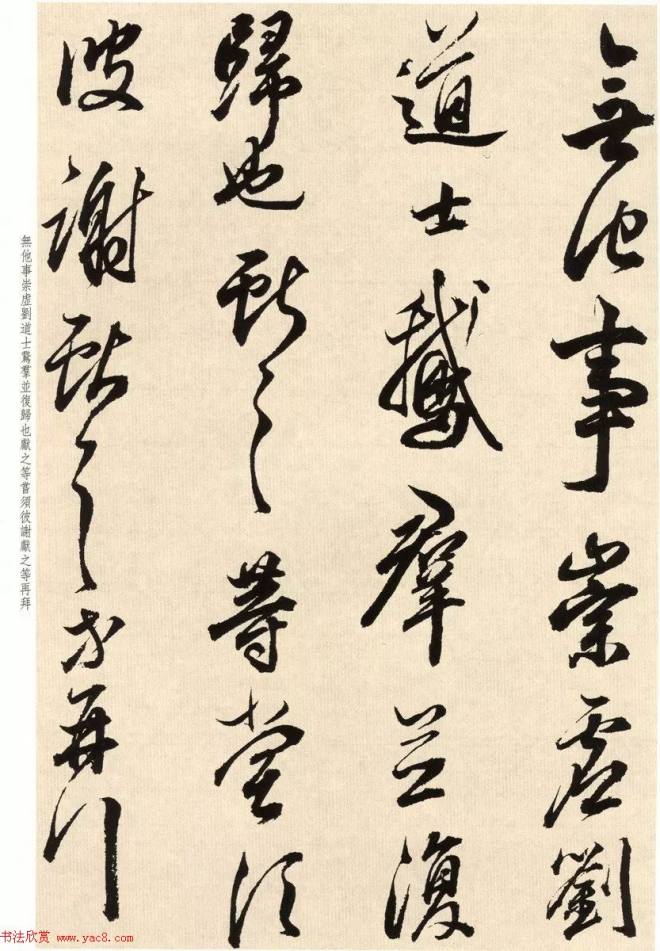 無他事崇虛劉
道士鵝羣並復
歸也獻之等當須
彼謝獻之等再拜
無他事崇虛劉道士鵞羣並復歸也獻之等嘗須彼謝獻之等再拜
书法欣赏 www.yac8.com